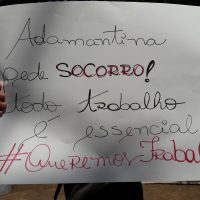 Adamantina
pede SOCORRO!
todo trabalho
é essencial
#QueremosTrabal